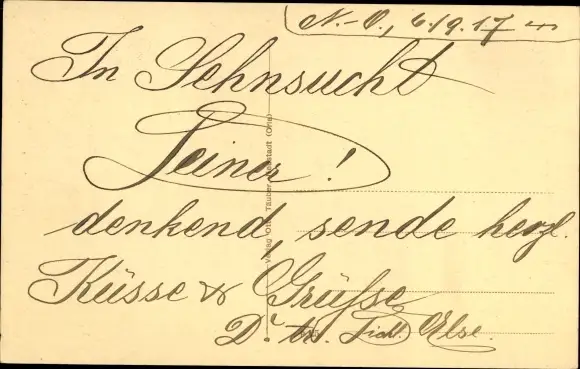 N.-O., 6/9.17
In Sehnsucht
Deiner!
denkend, sende herzl.
Küsse & Grüsse
Dr. tr. Else.
Verlag Otto Täuber, Neustadt (Orla)